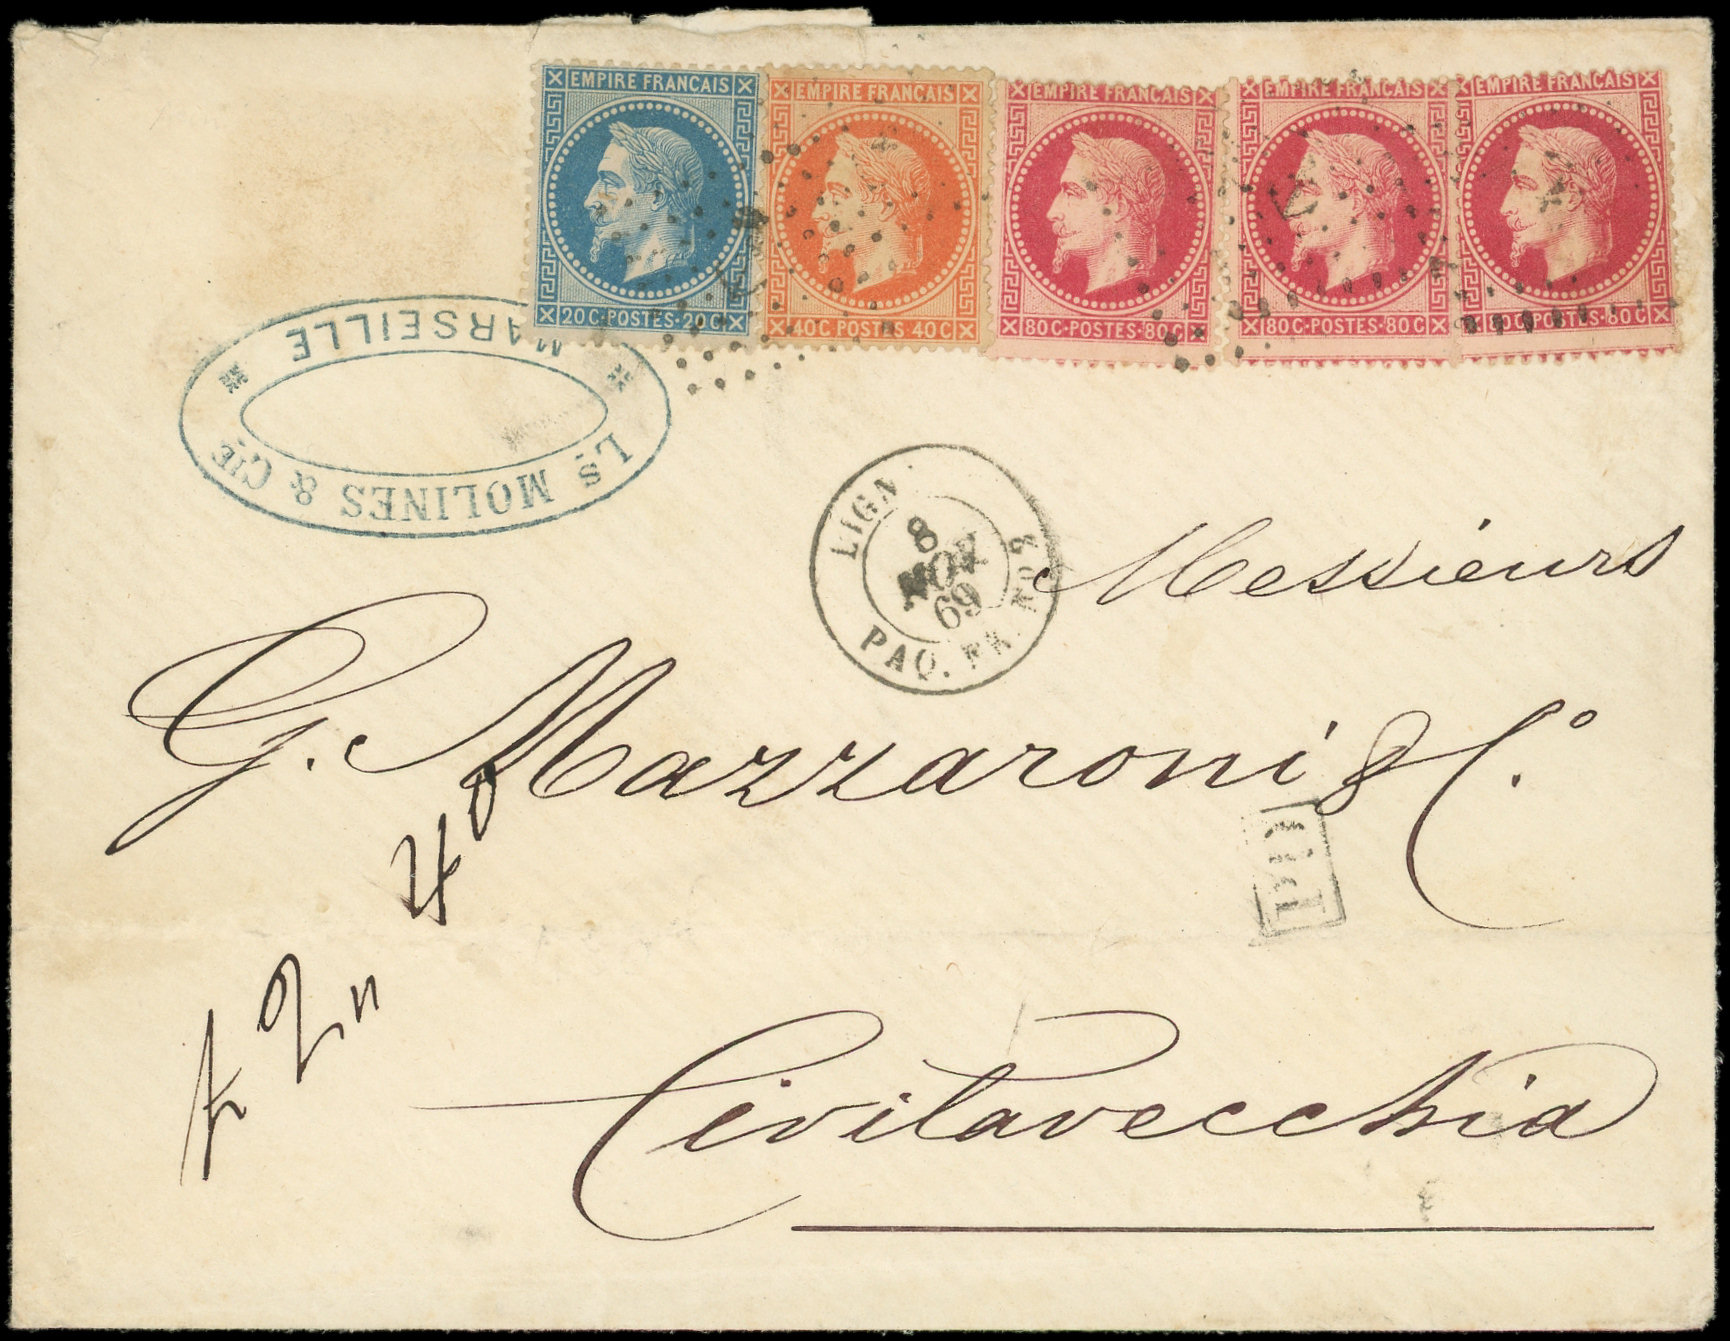 EMPIRE FRANCAIS
20 C·POSTES·20 C
EMPIRE FRANCAIS
40 C·POSTES·40 C
EMPIRE FRANCAIS
80 C·POSTES·80 C
EMPIRE FRANCAIS
80 C·POSTES·80 C
EMPIRE FRANCAIS
80 C·POSTES·80 C
Ls. MOLINES & CIE.
MARSEILLE
LIGN
8
NOV
69
PAQ. FR. No 2
Messieurs
G. Mazzaroni & Co.
P.D.
40
2"
Civitavecchia